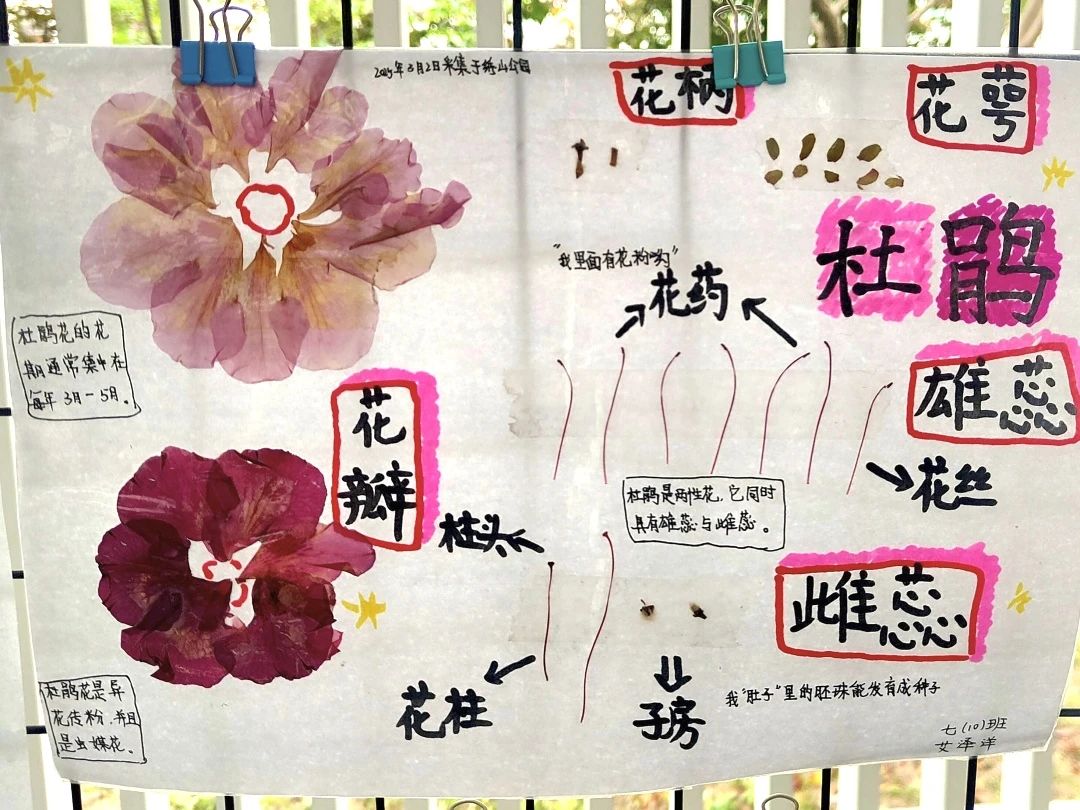 2025年3月2日采集于绣山公园
花柄
花萼
杜鹃
"我里面有花粉哟"
花药
杜鹃花的花
期通常集中在
每年3月-5月。
花
瓣
雄蕊
花丝
杜鹃是两性花,它同时
具有雄蕊与雌蕊。
柱头
雌蕊
花柱
子房
我"肚子"里的胚珠能发育成种子
杜鹃花是异
花传粉,并且
是虫媒花。
七(10)班
艾泽洋